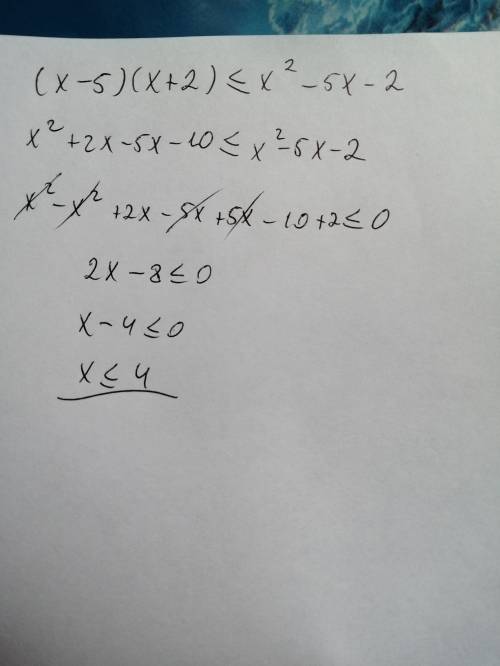 (x-5)(x+2) ≤ x² - 5x - 2
x² + 2x - 5x - 10 ≤ x² - 5x - 2
x² - x² + 2x - 5x + 5x - 10 + 2 ≤ 0
2x - 8 ≤ 0
x - 4 ≤ 0
x ≤ 4